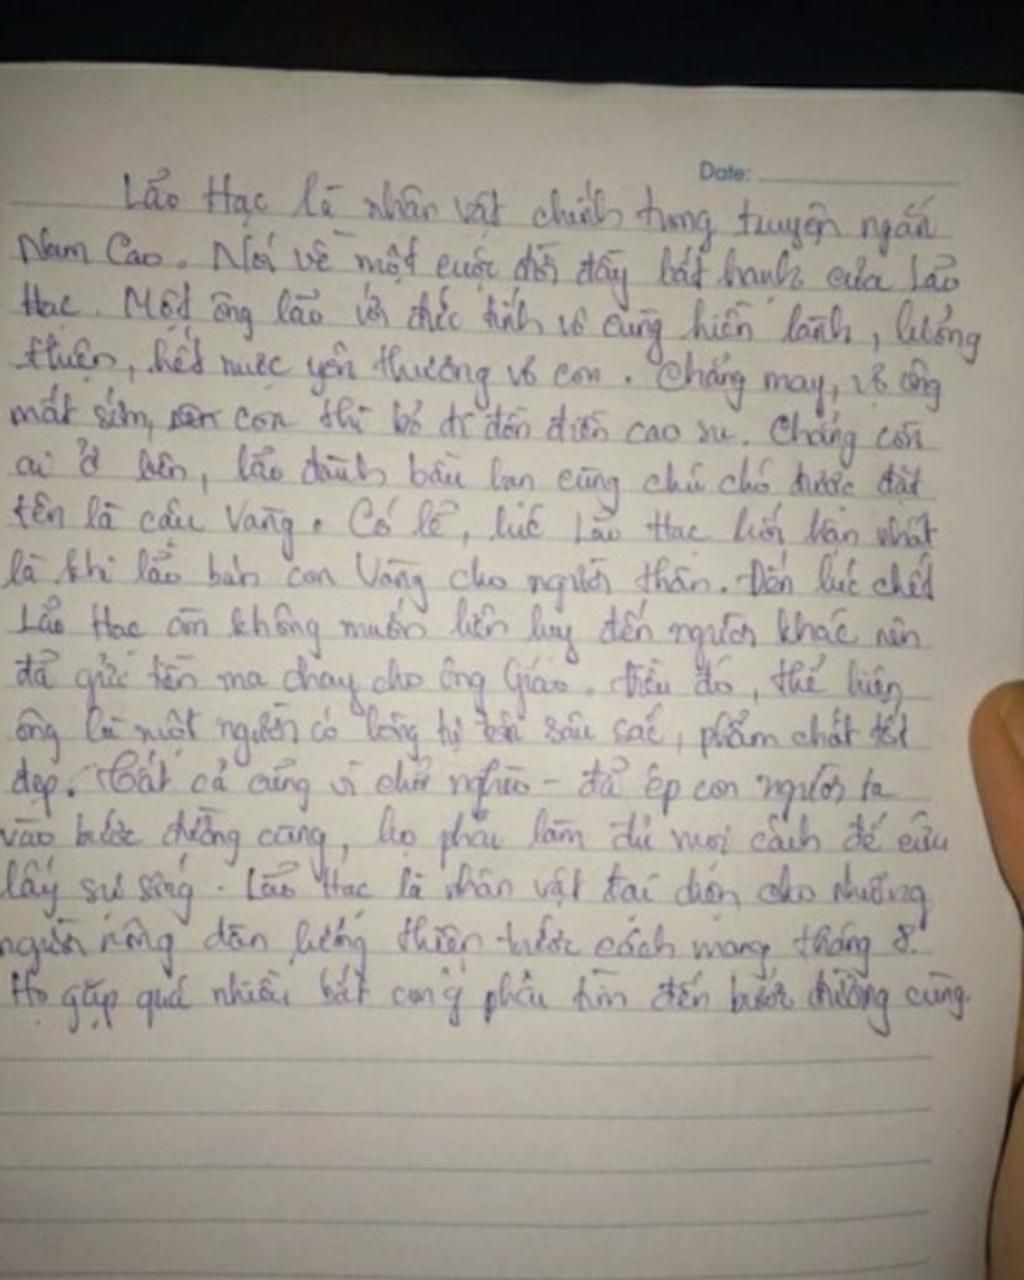 Date:
Lão Hạc là nhân vật chính trong truyện ngắn
Nam Cao. Nói về một cuộc đời đầy bất hạnh của Lão
Hạc. Một ông lão với đức tính vô cùng hiền lành, lương
thiện, hết mực yên thương vợ con. Chẳng may, vợ ông
mất sớm, con thì bỏ đi đồn điền cao su. Chẳng còn
ai ở bên, lão đành bầu bạn cùng chú chó được đặt
tên là cậu Vàng. Có lẽ, lúc Lão Hạc hối hận nhất
là khi lão bán con Vàng cho người thân. Đến lúc chết
Lão Hạc còn không muốn liên lụy đến người khác nên
đã gửi tiền ma chay cho ông Giáo. Điều đó, thể hiện
ông là một người có lòng tự sâu sắc, phẩm chất tốt
đẹp. Tất cả cũng vì chữ nghèo - đã ép con người ta
vào bước đường cùng, họ phải làm đủ mọi cách để cứu
lấy sự sống. Lão Hạc là nhân vật đại diện cho những
người nông dân lương thiện trước cách mạng tháng 8.
Họ gặp quá nhiều bất công phải tìm đến bước đường cùng.